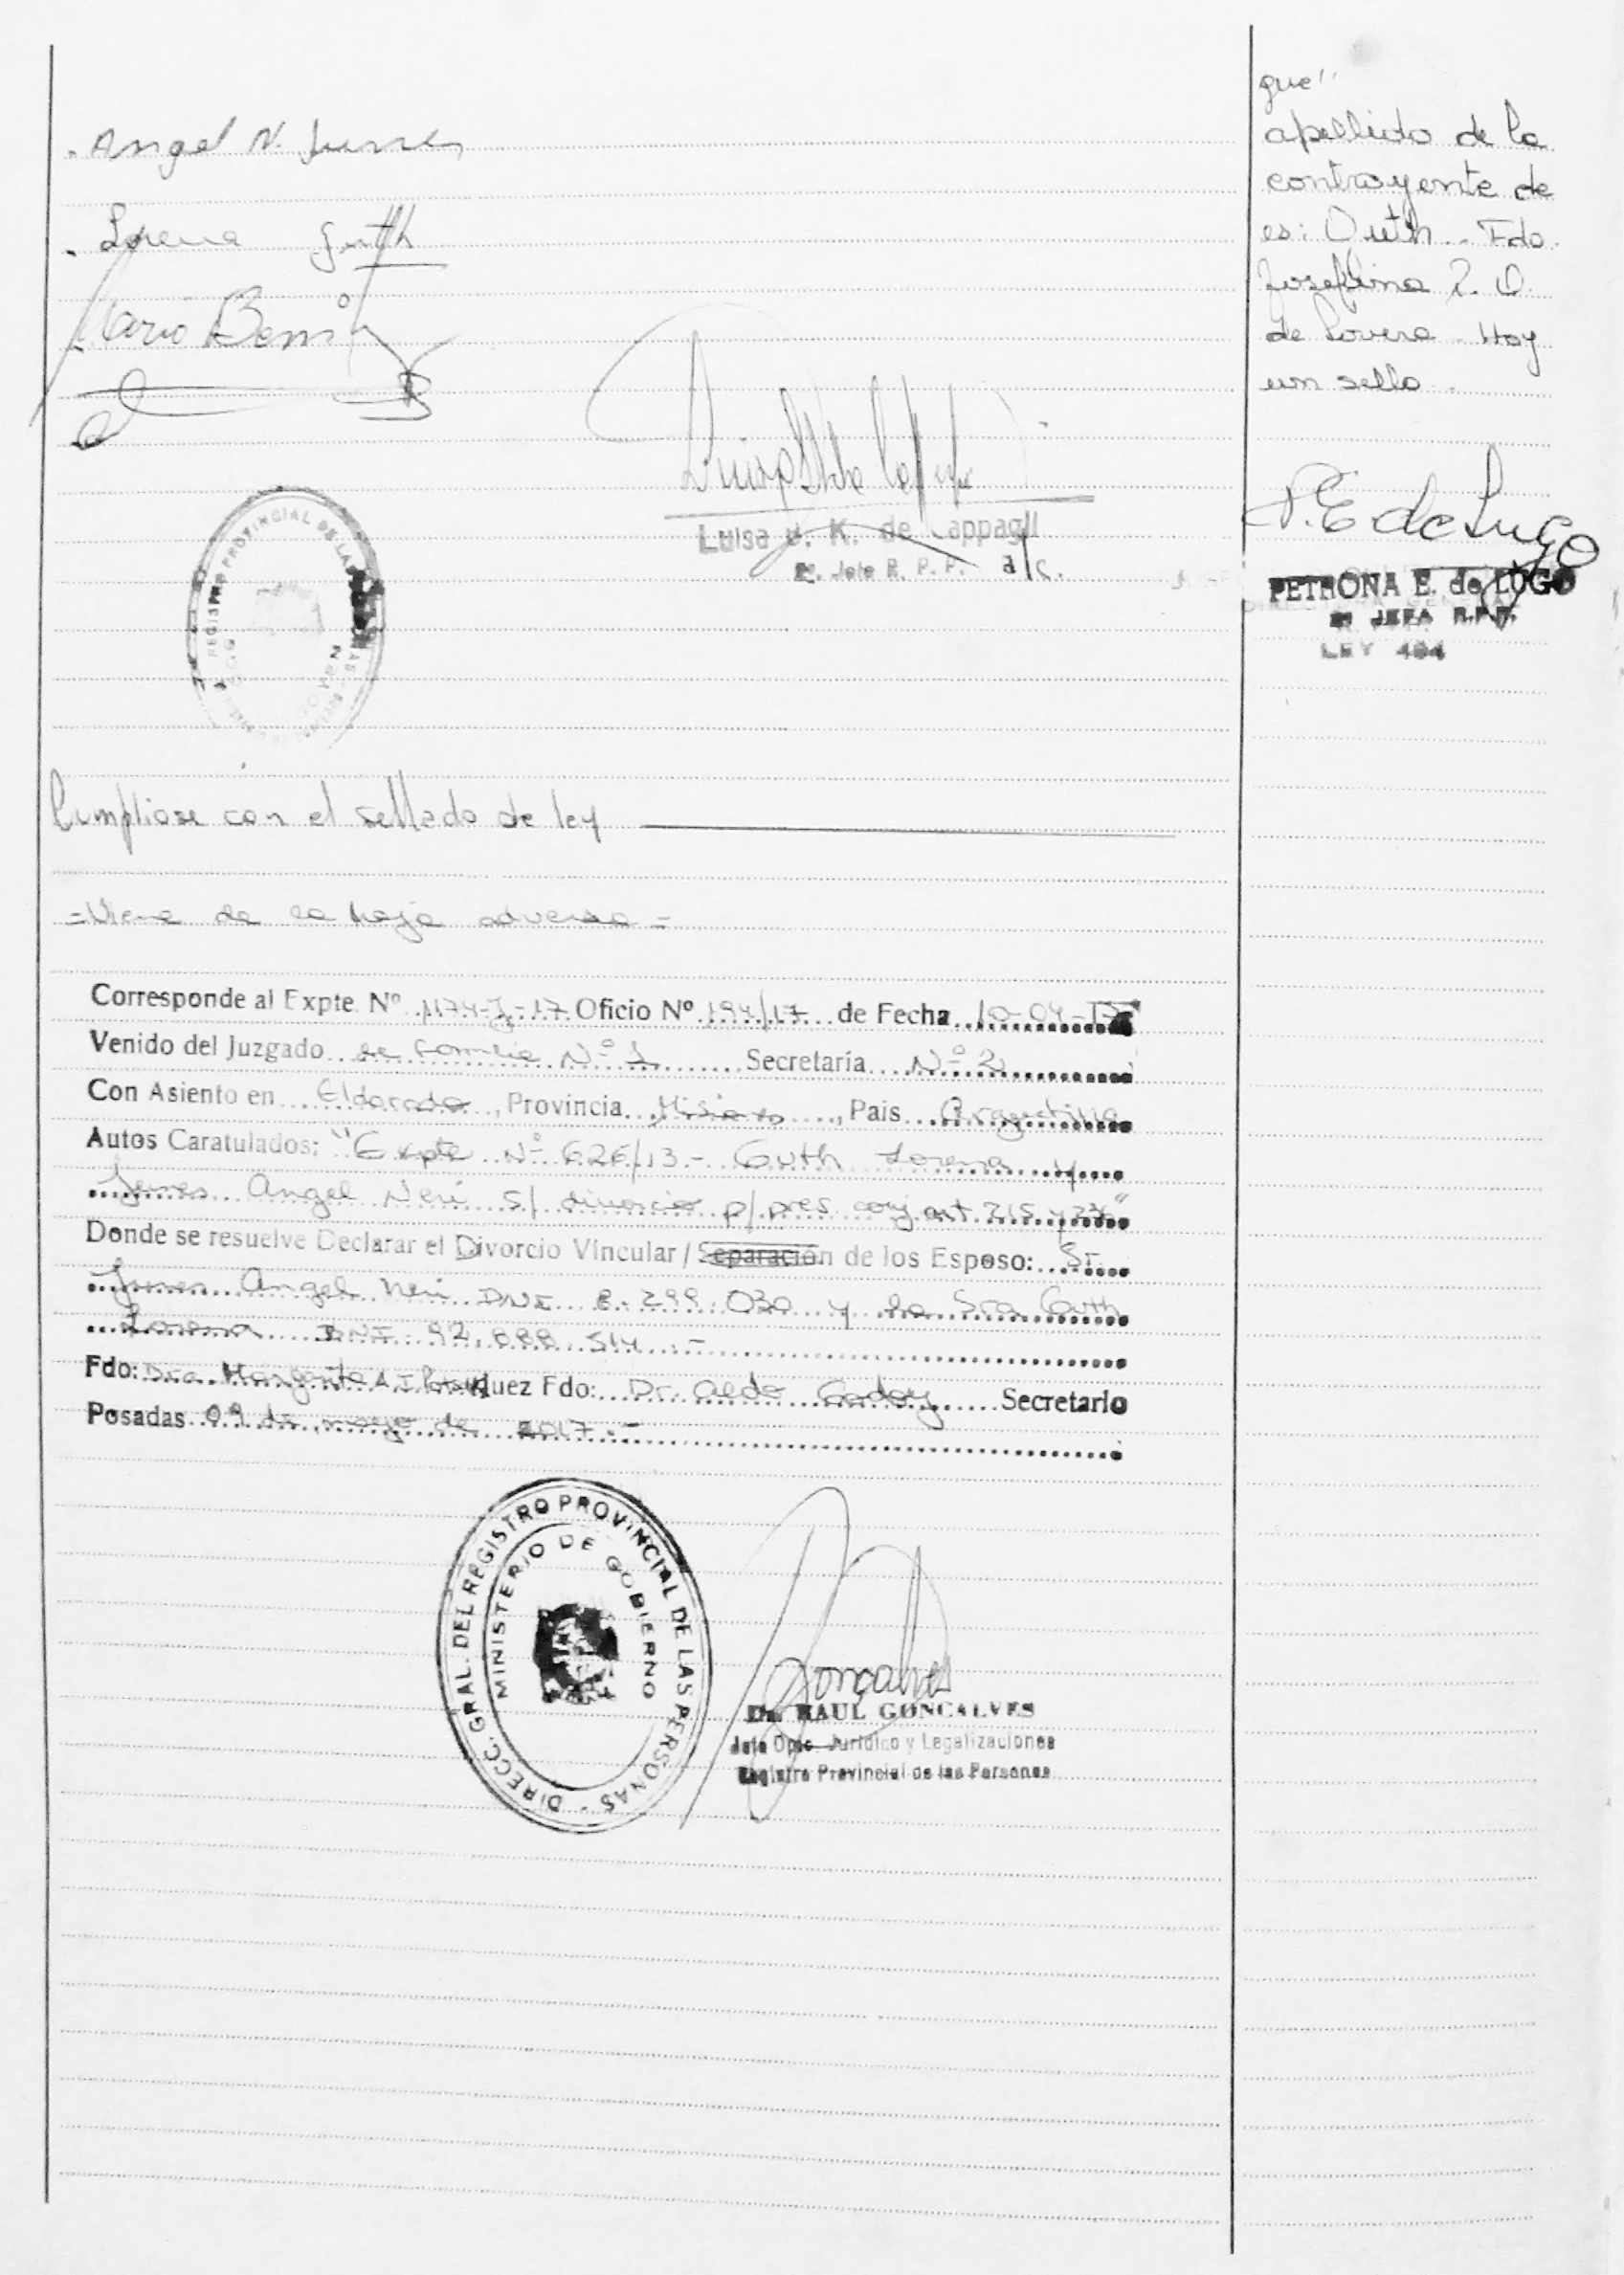 . Angel N.
. Lorena Guth
Mario
Luisa U. K. de Cappagli
Jefe R. P. P. a/c.
REGISTRO PROVINCIAL DE LAS PERSONAS
Cumpliose con el sellado de ley
=Viene de la hoja adversa=
Corresponde al Expte. Nº 1174-J-17 Oficio Nº 194/17 de Fecha 10-04-17
Venido del Juzgado de Familia Nº 1 Secretaría Nº 2
Con Asiento en Eldorado, Provincia Misiones, Pais Argentina
Autos Caratulados: "Expte Nº 626/13.- Guth Lorena y
Angel Neri s/ divorcio p/ pres conj art 215 y 236"
Donde se resuelve Declarar el Divorcio Vincular / Separación de los Esposo: Sr.
Angel Neri DNI 8.299.030 y la Sra Guth
Lorena DNI 92.888.514 .-
Fdo: Dra. Margarita A. Juez Fdo: Dr. Aldo Godoy Secretario
Posadas 09 de mayo de 2017.-
DIRECC. GRAL. DEL REGISTRO PROVINCIAL DE LAS PERSONAS -
MINISTERIO DE GOBIERNO
Goncalves
Dr. RAUL GONCALVES
Jefe Dpto. Jurídico y Legalizaciones
Registro Provincial de las Personas
que"
apellido de la
contrayente de
es: Guth.- Fdo.
Josefina R. O.
de Lovera - Hay
un sello.-
P. E de Lugo
PETRONA E. de LUGO
JEFA R.P.P.
LEY 494